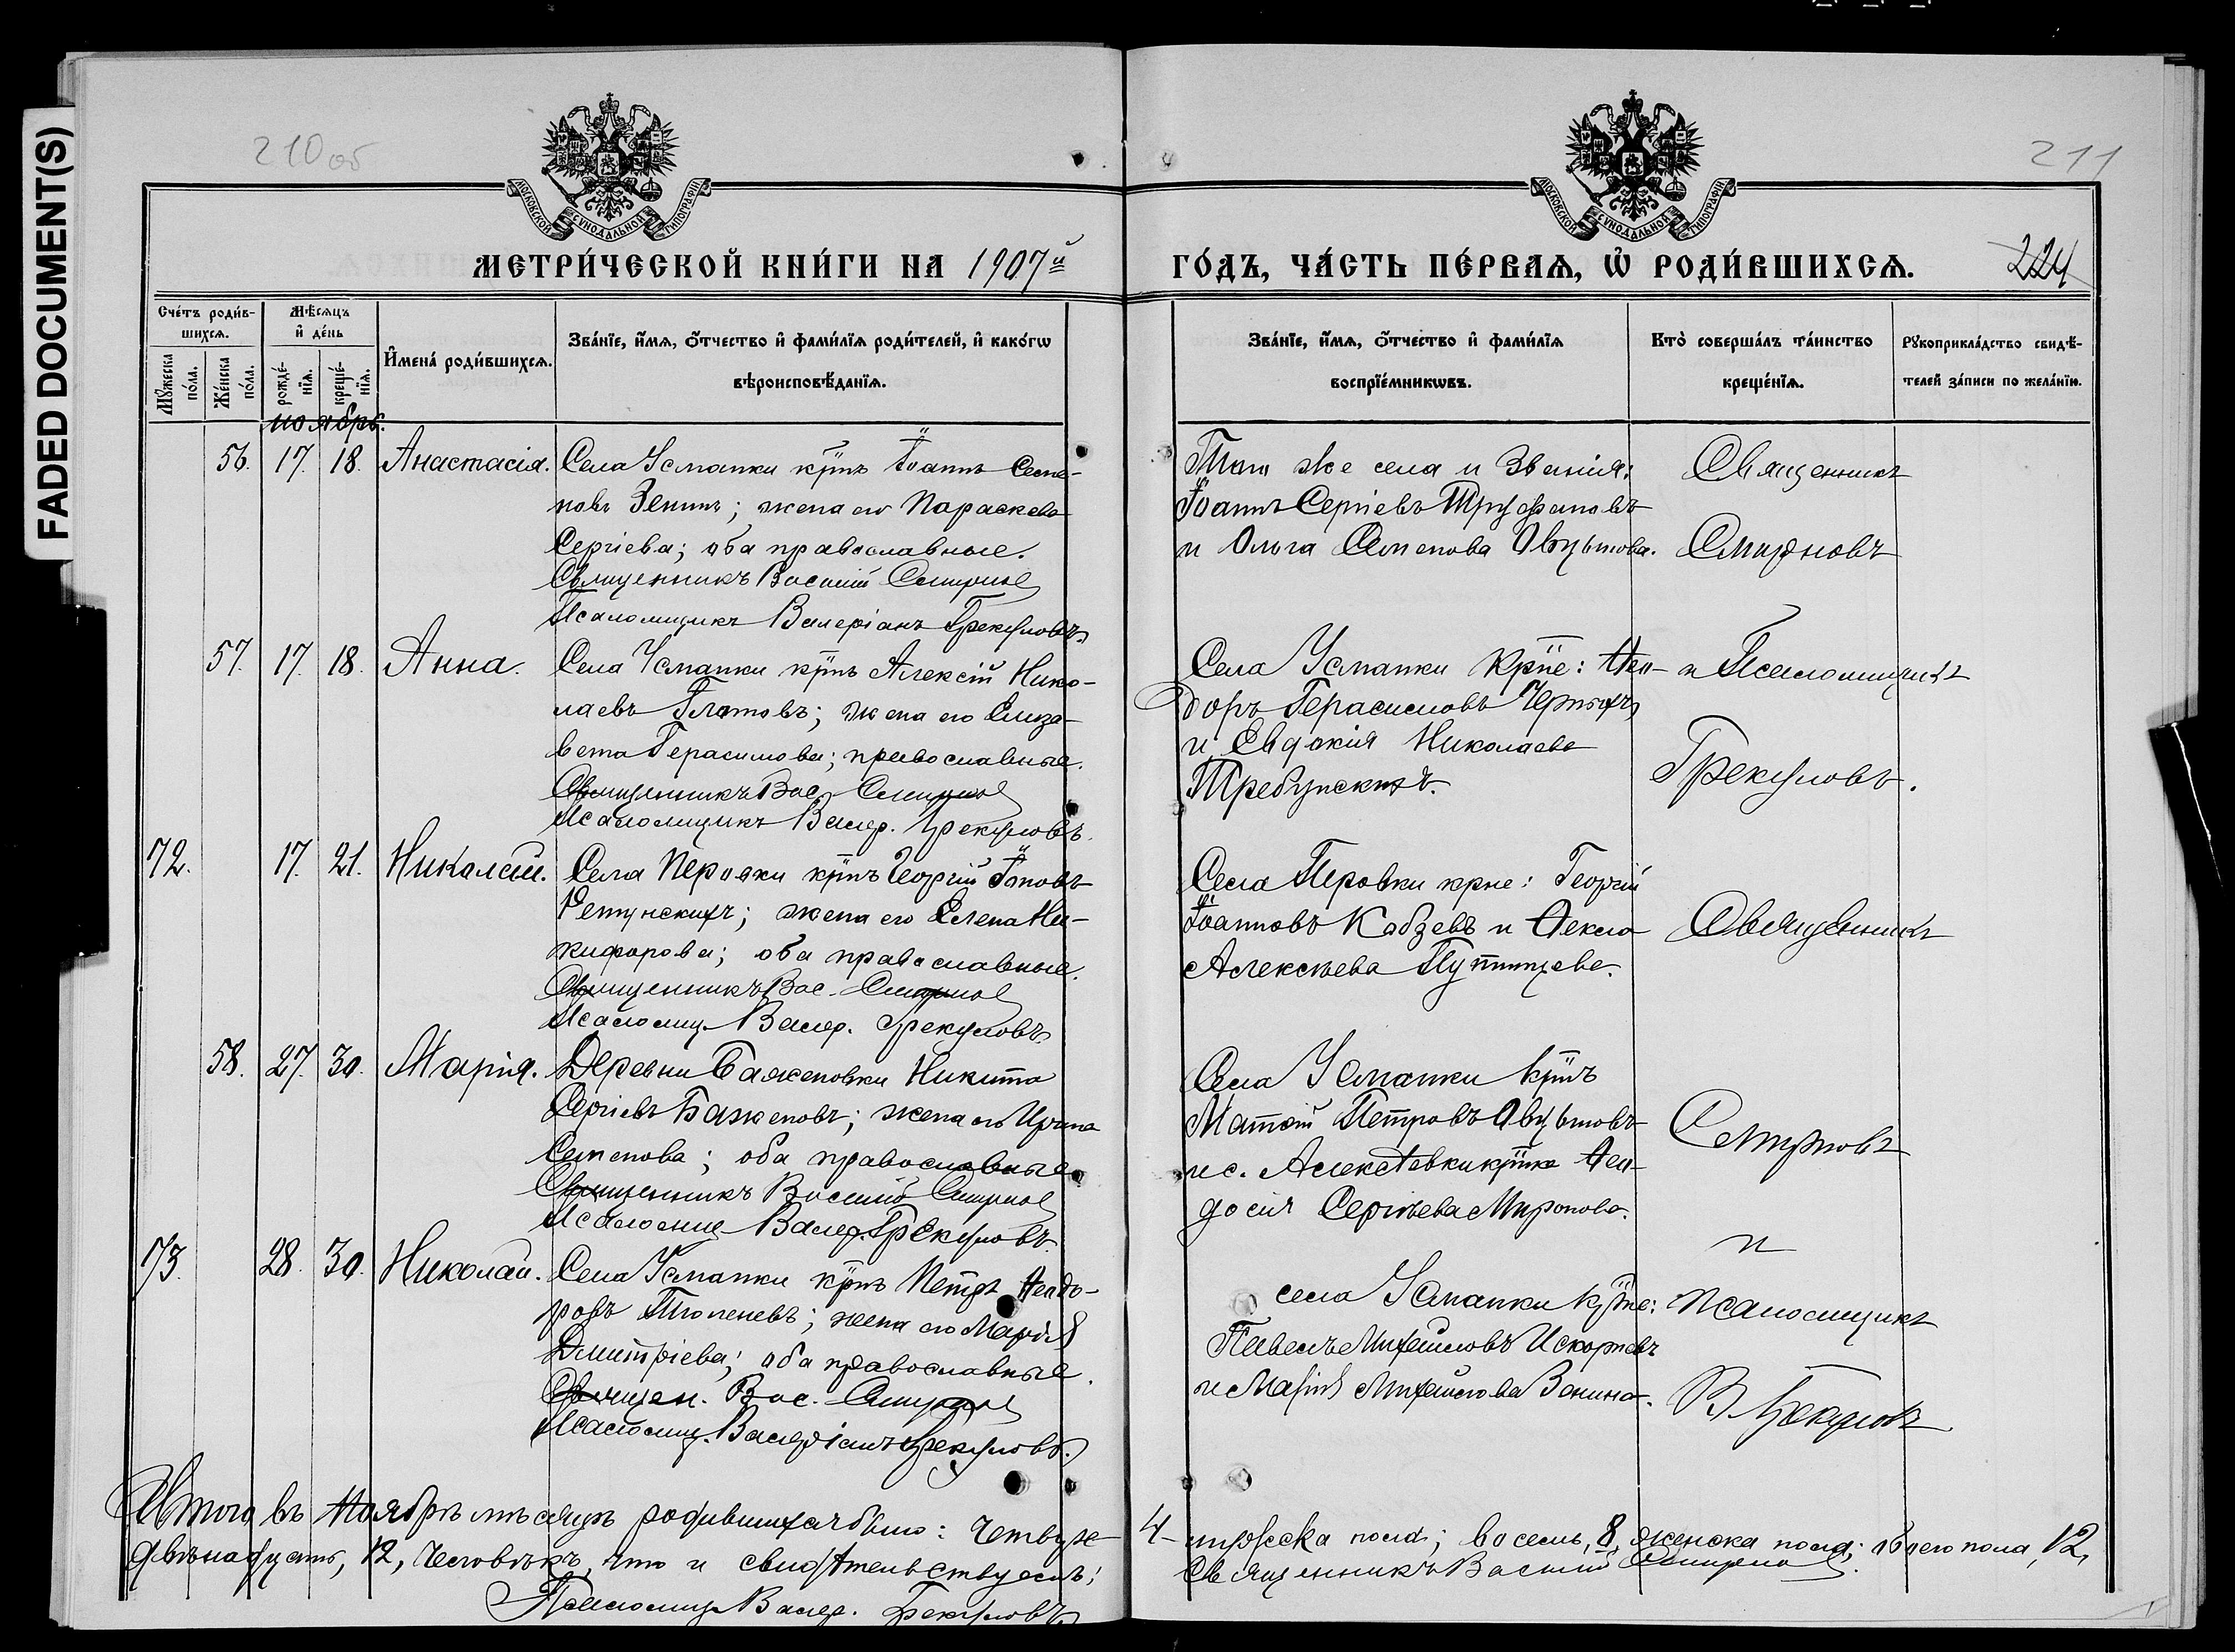 FADED DOCUMENT(S)
210 об
211
МОСКОВСКОЙ СѴНОДАЛЬНОЙ ТИПОГРАФІИ
МОСКОВСКОЙ СѴНОДАЛЬНОЙ ТИПОГРАФІИ
МЕТРИ́ЧЕСКОЙ КНИ́ГИ НА 1907й
ГО́ДЪ, ЧА́СТЬ ПЕ́РВАѦ, Ѡ҆ РОДИ́ВШИХСѦ.
224
Сче́тъ роди́в-
шихсѧ.
Мѹ́жеска по́ла.
Же́нска по́ла.
Мѣ́сѧцъ
и҆ де́нь
рожде́-
нїѧ.
креще́-
нїѧ.
И҆мена̀ роди́вшихсѧ.
Зва́нїе, и҆́мѧ, ѻ҆́тчество и҆ фами́лїѧ роди́телей, и҆ како́гѡ
вѣроисповѣ́данїѧ.
Зва́нїе, и҆́мѧ, ѻ҆́тчество и҆ фами́лїѧ
воспрїе́мникѡвъ.
Кто̀ соверша́лъ та́инство
креще́нїѧ.
Рꙋкоприкла́дство свидѣ́-
телей за́писи по жела́нїю.
ноябрь.
56. 17. 18. Анастасія. Села Усманки крнъ Іоаннъ Семе-
новъ Зенинъ; жена его Параскева
Сергіева; оба православные.
Священникъ Василій Смирнов
Псаломщикъ Валеріанъ Грекуловъ
Того же села и званія:
Іоаннъ Сергіевъ Труфановъ
и Ольга Семенова
Священникъ
Смирновъ
57. 17. 18. Анна. Села Усманки крнъ Алексій Нико-
лаевъ Глотовъ; жена его Елиза-
вета Герасимова; православные.
Священникъ Вас. Смирнов
Псаломщикъ Валер. Грекуловъ.
Села Усманки крне: Ѳео-
доръ Герасимовъ Черныхъ
и Евдокія Николаева
Требунскихъ.
и Псаломщикъ
Грекуловъ.
72. 17. 21. Николай. Села Перовки крнъ Георгій
Ретунскихъ; жена его Елена Ни-
кифорова; оба православные.
Священникъ Вас. Смирнов
Псаломщ. Валер. Грекуловъ
Села Перовки крне: Георгій
Іоанновъ Кобзевъ и Ѳекла
Алексѣева Путинцева.
Священникъ
58. 27. 30. Марія. Деревни Баженовки Никита
Сергіевъ Баженовъ; жена его Ирина
Семенова; оба православные.
Священникъ Василій Смирнов
Псаломщ. Валер. Грекуловъ.
Села Усманки крнъ
Матѳій Петровъ
и с. Алексѣевки крнка Ѳео-
досія Сергѣева Миронова.
Смирновъ
73. 28. 30. Николай. Села Усманки крнъ Петръ Ѳеодо-
ровъ Тюпеневъ; жена его Марія
Дмитріева; оба православные.
Священ. Вас. Смирнов
Псаломщ. Валеріанъ Грекуловъ.
села Усманки крне:
Павелъ Михайловъ
и Марія Михайлова Зенина.
и
псаломщикъ
В. Грекулов
Итого въ Ноябрѣ мѣсяцѣ родившихся было: Четыре 4 мужска пола; восемь, 8, женска пола; обоего пола, 12,
двѣнадцать, 12, человѣкъ, что и свидѣтельствуемъ; Священникъ Василій Смирнов.
Псаломщ. Валер. Грекуловъ